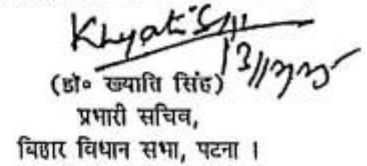 Khyati Singh
(डॉ० ख्याति सिंह)
प्रभारी सचिव,
बिहार विधान सभा, पटना ।